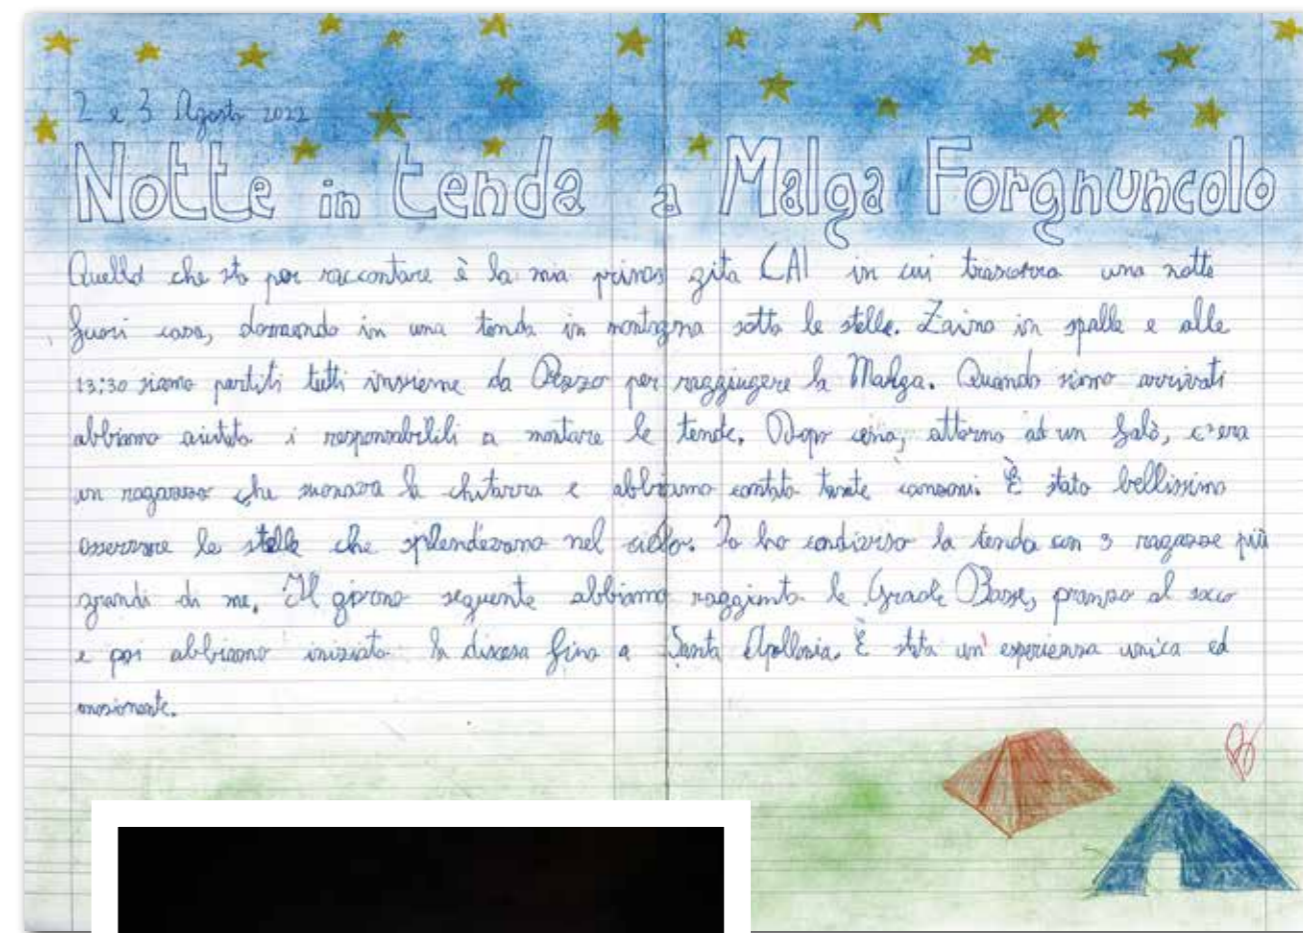 2 e 3 Agosto 2022
Notte in tenda a Malga Forgnuncolo
Quello che sto per raccontare è la mia prima gita CAI in cui trascorro una notte
fuori casa, dormendo in una tenda in montagna sotto le stelle. Zaino in spalle e alle
13:30 siamo partiti tutti insieme da Pozzo per raggiungere la Malga. Quando siamo arrivati
abbiamo aiutato i responsabilili a montare le tende. Dopo cena, attorno ad un falò, c'era
un ragazzo che suonava la chitarra e abbiamo cantato tante canzoni. È stato bellissimo
osservare le stelle che splendevano nel cielo. Io ho condiviso la tenda con 3 ragazze più
grandi di me. Il giorno seguente abbiamo raggiunto le Graole Basse, pranzo al sacco
e poi abbiamo iniziato la discesa fino a Santa Apollonia. È stata un'esperienza unica ed
emozionante.